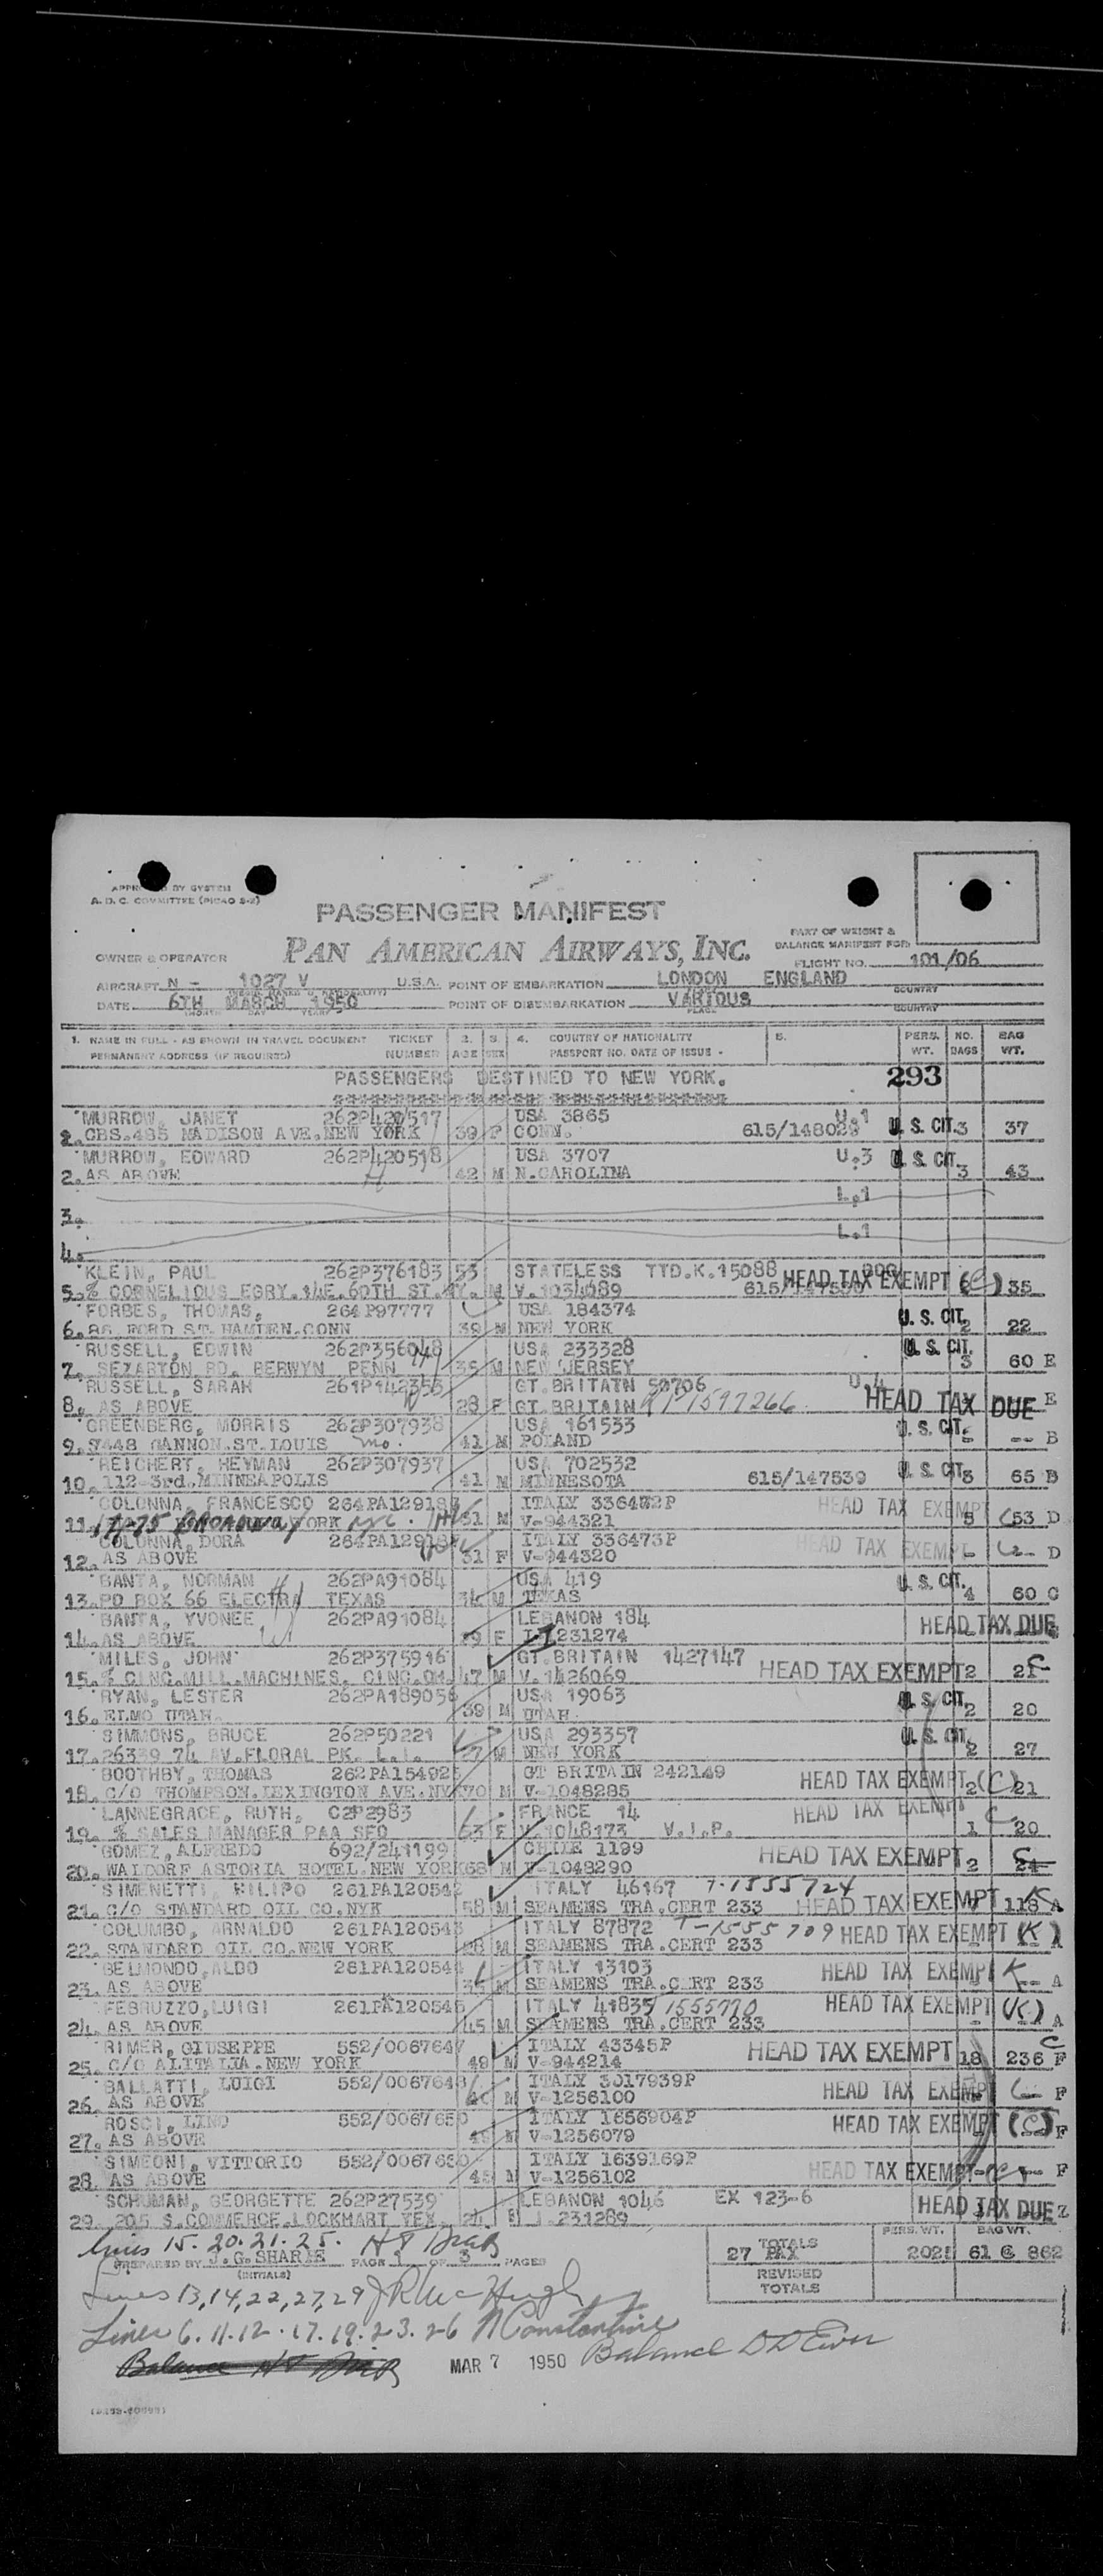 APPROVED BY SYSTEM
A. D. C. COMMITTEE (PICAO S-2)
PASSENGER MANIFEST
PAN AMERICAN AIRWAYS, INC.
PART OF WEIGHT &
BALANCE MANIFEST FOR
OWNER & OPERATOR
FLIGHT NO. 101/06
AIRCRAFT N - 1027 V U.S.A. POINT OF EMBARKATION LONDON ENGLAND
COUNTRY
DATE 6TH MARCH 1950 POINT OF DISEMBARKATION VARIOUS
MONTH DAY YEAR PLACE COUNTRY
1. NAME IN FULL - AS SHOWN IN TRAVEL DOCUMENT TICKET 2. 3. 4. COUNTRY OF NATIONALITY 5. PERS. NO. BAG
PERMANENT ADDRESS (IF REQUIRED) NUMBER AGE SEX PASSPORT NO. DATE OF ISSUE - WT. BAGS WT.
PASSENGERS DESTINED TO NEW YORK. 293
MURROW, JANET 262P420517 USA 3865 U.1
CBS.485 MADISON AVE.NEW YORK 39 F CONN. U. S. CIT. 3 37
MURROW, EDWARD 262P420518 USA 3707 U.3 U. S. CIT.
2. AS ABOVE 42 M N.CAROLINA 3 43
L.1
3.
L.1
4.
KLEIN, PAUL 262P376183 53 STATELESS TTD.K.15088 HEAD TAX EXEMPT
5. % CORNELIOUS EGRY.14E.60TH ST. M V.1034089 (C) 35
FORBES, THOMAS, 264P97777 USA 184374 U. S. CIT.
6. 86 FORD ST. HAMDEN.CONN 39 M NEW YORK 2 22
RUSSELL, EDWIN 262P356048 USA 233328 U. S. CIT.
7. BERWYN PENN 35 M NEW JERSEY 3 60 E
RUSSELL, SARAH 261P142355 GT.BRITAIN 50706 U.4
8. AS ABOVE 28 F GT.BRITAIN 1597266 HEAD TAX DUE E
GREENBERG, MORRIS 262P307938 USA 161533 U. S. CIT.
9. 7448 GANNON.ST.LOUIS Mo. 41 M POLAND - -- B
REICHERT, HEYMAN 262P307937 USA 702532 U. S. CIT.
10. 112-3rd.MINNEAPOLIS 41 M MINNESOTA 615/147539 3 65 B
COLONNA, FRANCESCO 264PA129183 ITALY 336472P HEAD TAX EXEMPT
11. Broadway YORK 31 M V-944321 5 53 D
COLONNA, DORA ITALY 336473P HEAD TAX EXEMPT
12. AS ABOVE 31 F V-944320 - D
BANTA, NORMAN 262PA91084 USA 419 U. S. CIT.
13. PO BOX 66 ELECTRA TEXAS M TEXAS 4 60 C
BANTA, YVONEE 262PA91084 LEBANON 184 HEAD TAX DUE
14. AS ABOVE F 231274
MILES, JOHN 262P375916 GT.BRITAIN 1427147 HEAD TAX EXEMPT
15. % CINC.MILL.MACHINES, CINC.OH. 47 M V.1426069 2
RYAN, LESTER 262PA189056 USA 19063 U. S. CIT.
16. ELMO UTAH. 39 M UTAH. 2 20
SIMMONS, BRUCE 262P50221 USA 293357 U. S. CIT.
17. 26339 74 AV.FLORAL PK. L.I. M NEW YORK 2 27
BOOTHBY, THOMAS 262PA154925 GT BRITAIN 242149 HEAD TAX EXEMPT
18. C/O THOMPSON.LEXINGTON AVE.NYK 70 M V-1048285 2 (C) 21
LANNEGRACE, RUTH, C2P2983 FRANCE 14 HEAD TAX EXEMPT C
19. % SALES MANAGER PAA SFO 53 F V.1048173 V.I.P. 1 20
GOMEZ, ALFREDO 692/241199 CHILE 1199 HEAD TAX EXEMPT C
20. WALDORF ASTORIA HOTEL.NEW YORK 68 M V-1048290 2 24
SIMENETTI, FILIPO 261PA120542 ITALY 46167 T-1555724
21. C/O STANDARD OIL CO.NYK 58 M SEAMENS TRA.CERT 233 HEAD TAX EXEMPT 118 A
COLUMBO, ARNALDO 261PA120543 ITALY 87872 T-1555709 HEAD TAX EXEMPT (K)
22. STANDARD OIL CO.NEW YORK M SEAMENS TRA.CERT 233
BELMONDO, ALDO 261PA120544 ITALY 13103 HEAD TAX EXEMPT K
23. AS ABOVE M SEAMENS TRA.CERT 233 -- A
FEBRUZZO, LUIGI 261PA120545 ITALY 41835 HEAD TAX EXEMPT (K)
24. AS ABOVE 45 M SEAMENS TRA.CERT 233 A
RIMER, GIUSEPPE 552/0067647 ITALY 43345P HEAD TAX EXEMPT C
25. C/O ALITALIA.NEW YORK 49 M V-944214 18 236 F
BALLATTI, LUIGI 552/0067648 ITALY 3017939P HEAD TAX EXEMPT
26. AS ABOVE M V-1256100 F
ROSCI, LINO ITALY 1656904P HEAD TAX EXEMPT (C)
27. AS ABOVE M V-1256079 F
SIMEONI, VITTORIO 552/0067650 ITALY 1639169P
28. AS ABOVE 45 M V-1256102 HEAD TAX EXEMPT F
SCHUMAN, GEORGETTE 262P27539 LEBANON 1046 EX 123-6
29. 205 S.COMMERCE.LOCKHART TEX. 24 F 231289 HEAD TAX DUE
Lines 15. 20. 21. 25.
PREPARED BY J.G.SHARIE PAGE 1 OF 3 PAGES
(INITIALS)
PERS. WT. BAG WT.
TOTALS
27 PAX 61 @ 862
REVISED
TOTALS
Lines 13,14,22,27,29
Lines 6. 11. 12. 17. 19. 23. 26 N Constantine
Balance MAR 7 1950 Balance